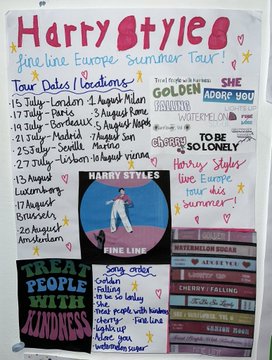 Harry Styles
fine line Europe Summer Tour!
Tour Dates/Locations
15 July - London
17 July - Paris
19 July - Bordeaux
21 July - Madrid
25 July - Seville
27 July - Lisbon
13 August
Luxemborg
17 August
Brussels
20 August
Amsterdam
1 August Milan
3 August Rome
5 August Naples
7 August San
Marino
10 August vienna
Treat People with Kindness
GOLDEN
FALLING
SHE
ADORE YOU
LIGHTS UP
WATERMELON
FINE LINE
CHERRY
TO BE
SO LONELY
Harry Styles
live Europe
tour this
Summer!
HARRY STYLES
FINE LINE
TREAT
PEOPLE
WITH
KINDNESS
Song order
-Golden
-Falling
-to be so lonely
-She
-Treat people with kindness
-cherry -Fine line
-lights up
-Adore you
-watermelon sugar
GOLDEN
WATERMELON SUGAR
ADORE YOU
LIGHTS UP
CHERRY
FALLING
To Be So Lonely
SHE
CANYON MOON
FINE LINE